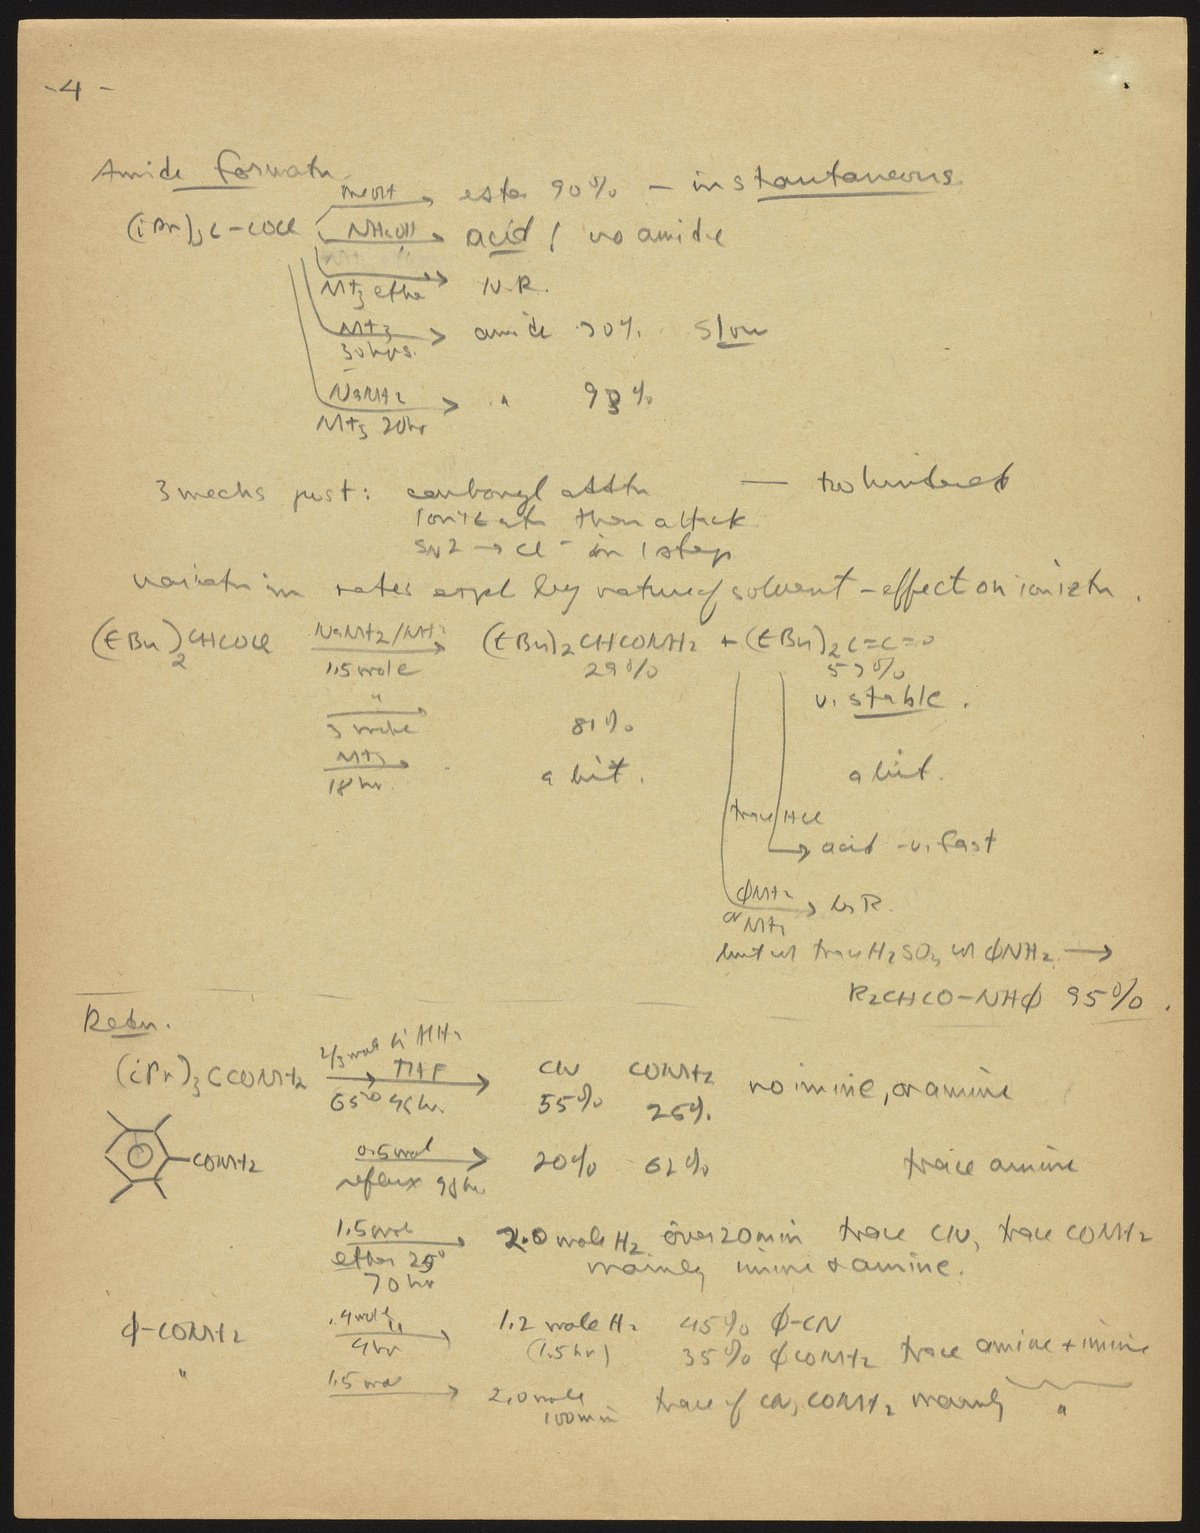 -4-
Amide Formatn
MeOH → ester 90% - instantaneous
(iPr)3C-COCl NH4OH → acid / no amide
NH3 ether → N.R.
NH3 30 hrs. → amide 70% Slow
NaNH2 NH3 20hr → " 93%
3 mechs post: carbonyl attk — too hindered
ionizatn then attack
SN2 → Cl- in 1 step
variatn in rates expl by nature of solvent - effect on ionizn.
(tBu)2CHCOCl NaNH2/NH3 1.5 mole → (tBu)2CHCONH2 + (tBu)2C=C=O
29% 57%
v. stable.
" 3 mole → 81%
NH3 18 hr. → a bit. a bit.
trace HCl
→ acid - v. fast
ΦNH2 or NH3 → No R.
but w trace H2SO4 w ΦNH2 →
R2CHCO-NHΦ 95%.
Redn.
(iPr)3CCONH2 2/3 mole LiAlH4 THF 65° 48 hr. → CN CONH2 no imine, or amine
55% 25%
-CONH2 0.5 mol reflux 98 hr → 20% 62% trace amine
1.5 mol ether 25° 70 hr → 2.0 mole H2 over 20 min trace CN, trace CONH2
mainly imine & amine.
Φ-CONH2 .4 mole 4hr → 1.2 mole H2 45% Φ-CN
(1.5 hr) 35% ΦCONH2 trace amine + imine
" 1.5 mol → 2.0 mole 100 min trace of CN, CONH2 mainly "